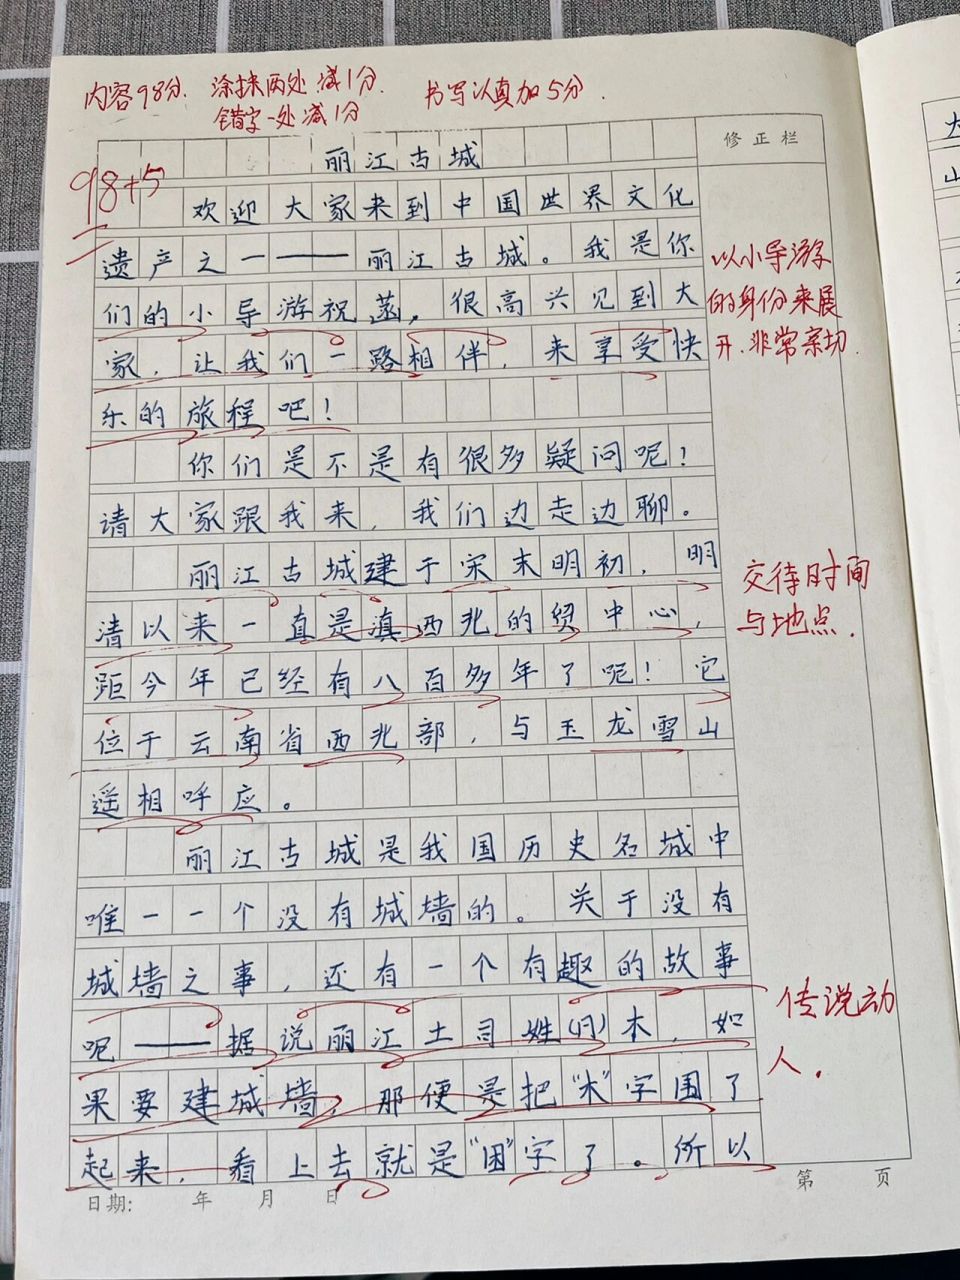 内容98分. 涂抹两处减1分. 书写认真加5分.
错字一处减1分
修正栏
丽江古城
98+5
欢迎大家来到中国世界文化
遗产之一——丽江古城。我是你
们的小导游祝菡，很高兴见到大
家，让我们一路相伴，来享受快
乐的旅程吧！
以小导游
的身份来展
开.非常亲切.
你们是不是有很多疑问呢！
请大家跟我来，我们边走边聊。
丽江古城建于宋末明初，明
清以来一直是滇西北的贸中心，
距今年已经有八百多年了呢！它
位于云南省西北部，与玉龙雪山
遥相呼应。
交待时间
与地点.
丽江古城是我国历史名城中
唯一一个没有城墙的。关于没有
城墙之事，还有一个有趣的故事
呢——据说丽江土司姓木，如
果要建城墙，那便是把“木”字围了
起来，看上去就是“困”字了。所以
传说动
人.
日期: 年 月 日
第 页
大
山